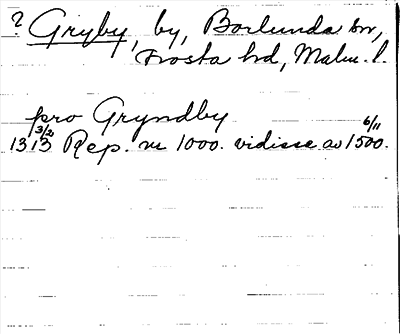 ? Gryby, by, Borlunda sn,
Frosta hd, Malm. l.
pro Gryndby
1313 3/2 Rep. nr 1000. vidisse av 1500 6/11.